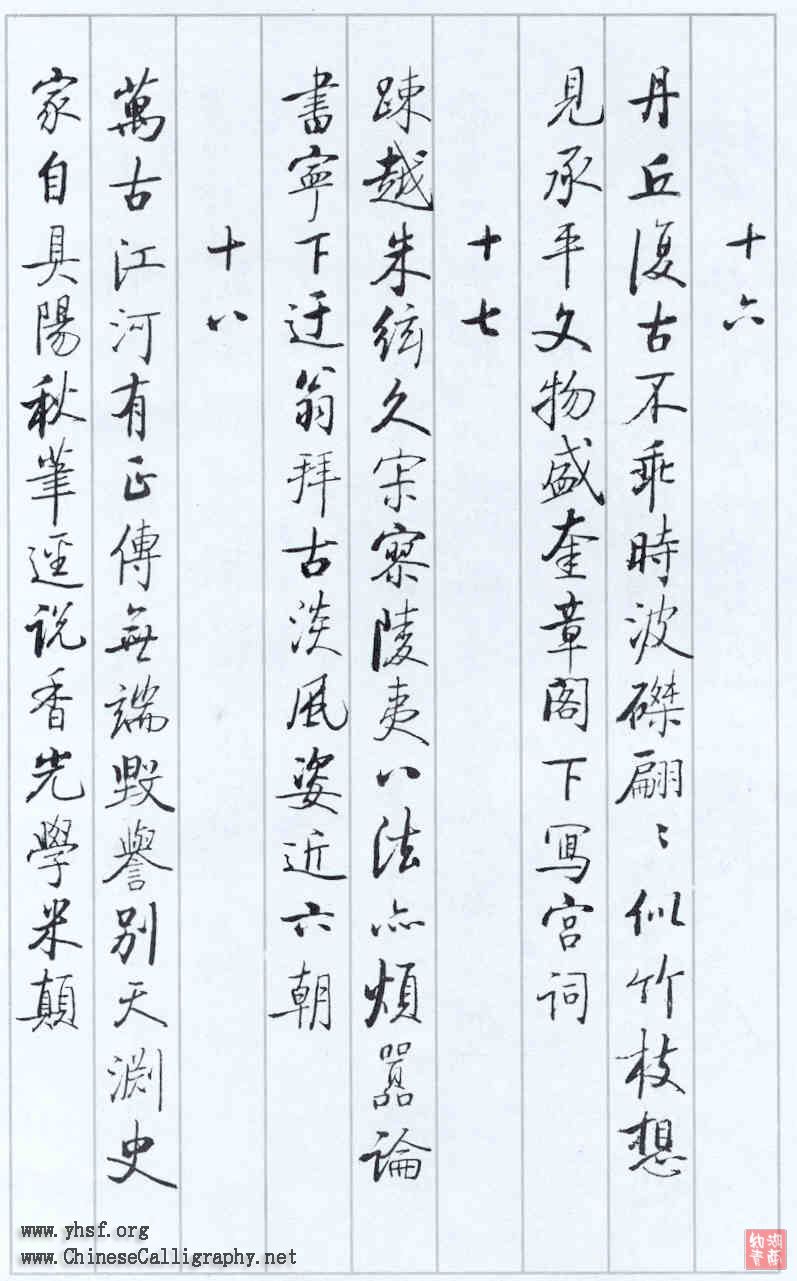 十六
丹丘復古不乖時波磔翩〻似竹枝想
見承平文物盛奎章閣下寫宮詞
十七
疎越朱絃久寂寥陵夷八法亦煩囂論
書寧下迂翁拜古淡風姿近六朝
十八
萬古江河有正傳無端毀譽別天淵史
家自具陽秋筆逕説香光學米顛
www.yhsf.org
www.ChineseCalligraphy.net